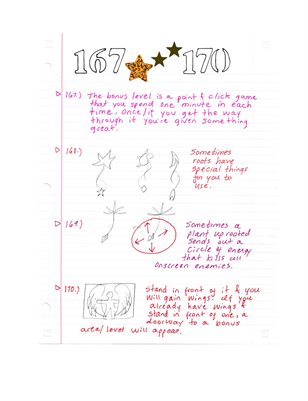 167 170
167.) The bonus level is a point & click game
that you spend one minute in each
time. Once/if you get the way
through it you're given something
great.
168.
Sometimes
roots have
special things
for you to
use.
169.
Sometimes a
plant uprooted
sends out a
circle of energy
that kills all
onscreen enemies.
170.)
Stand in front of it & you
will gain wings. If you
already have wings &
stand in front of one, a
doorway to a bonus
area/level will appear.